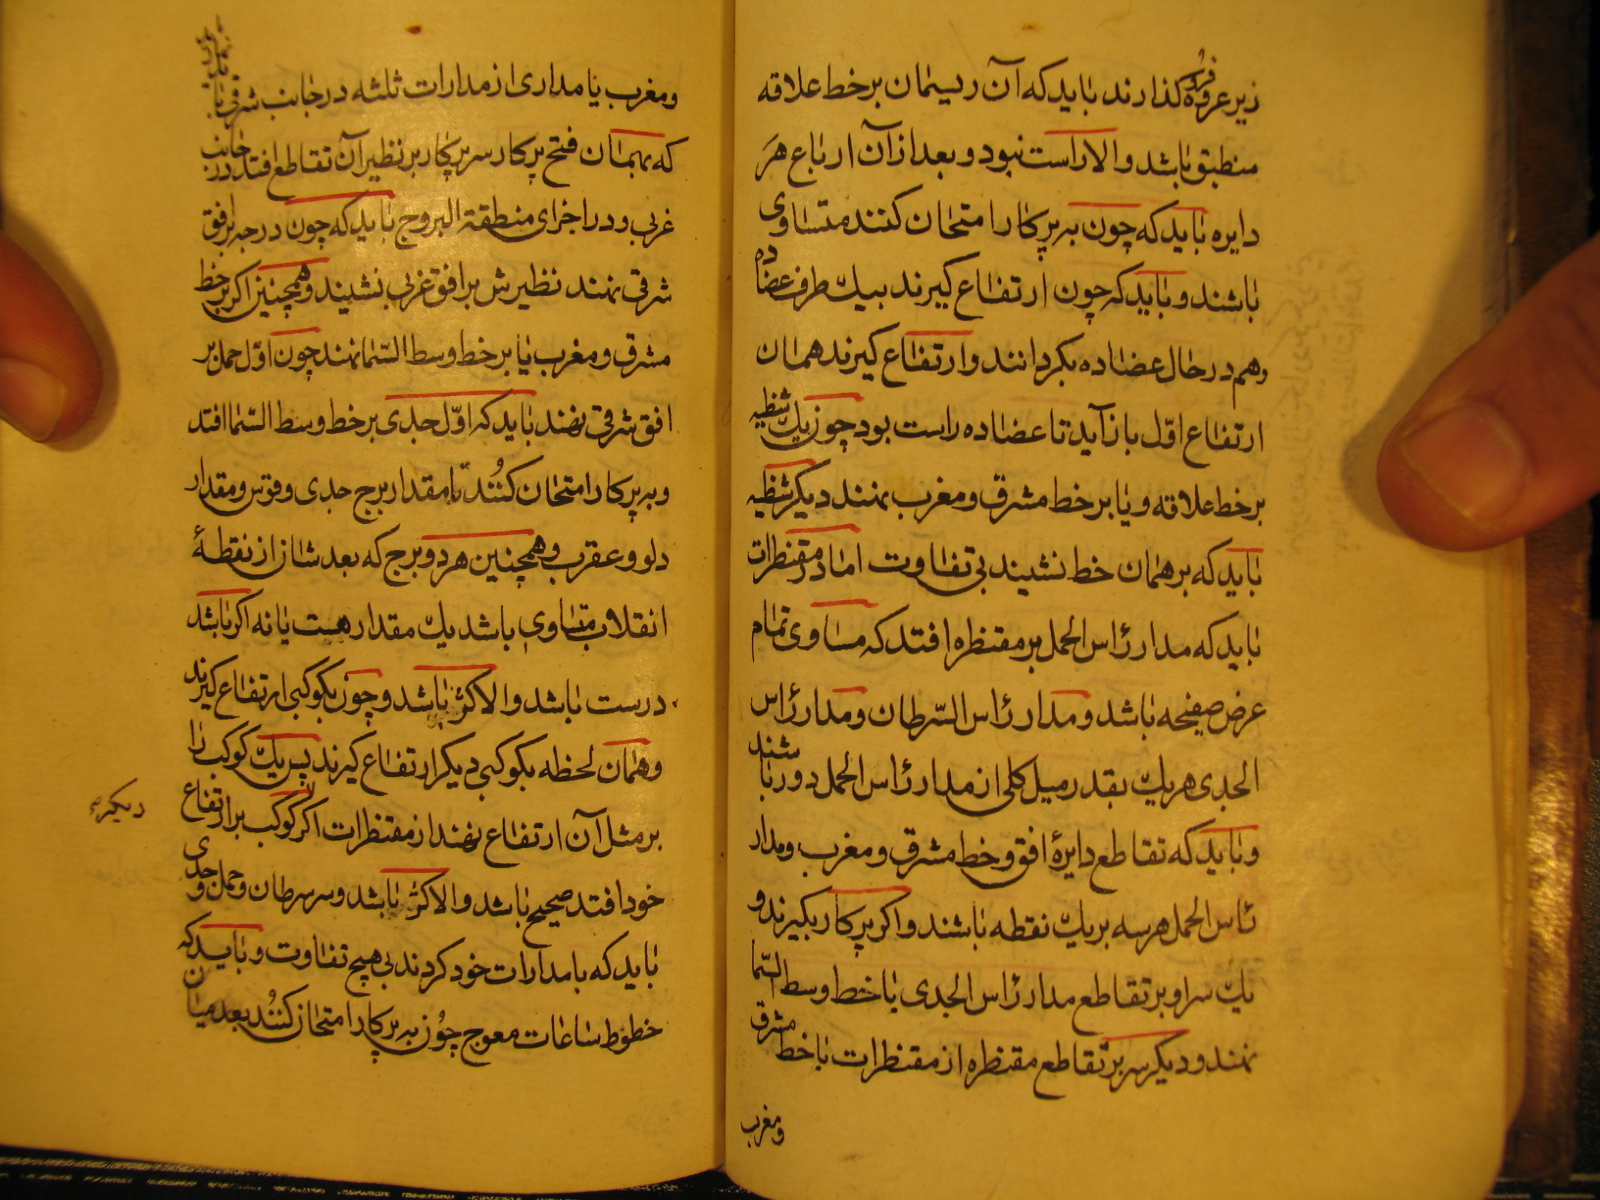 زیر عروه فرو کذارند باید که آن ریسمان بر خط علاقه
منطبق باشد والا راست نبود و بعد از آن ارباع هر
دایره باید که چون به پرکار امتحان کنند متساوی
باشند و باید که چون ارتفاع کیرند بیک طرف عضاده
وهم در حال عضاده بکردانند و ارتفاع کیرند همان
ارتفاع اول باز آید تا عضاده راست بود چون یک شظیه
بر خط علاقه و یا بر خط مشرق و مغرب نهند دیکر شظیه
باید که بر همان خط نشیند بی تفاوت اما در مقنطرات
باید که مدار رأس الحمل بر مقنطره افتد که مساوی تمام
عرض صفیحه باشد و مدار رأس السرطان و مدار رأس
الجدی هر یک بقدر میل کلی از مدار رأس الحمل دور باشند
و باید که تقاطع دایرهٔ افق و خط مشرق و مغرب و مدار
رأس الحمل هر سه بر یک نقطه باشند و اکر پرکار بکیرند و
یک سر او بر تقاطع مدار رأس الجدی با خط وسط السما
نهند و دیکر سر بر تقاطع مقنطره از مقنطرات با خط مشرق
و مغرب
و مغرب یا مداری از مدارات ثلثه در جانب شرقی باید
که بهمان فتح پرکار سر پرکار بر نظیر آن تقاطع افتد در جانب
غربی و در اجزای منطقة البروج باید که چون درجه بر افق
شرقی نهند نظیرش بر افق غربی نشیند و همچنین اکر بر خط
مشرق و مغرب یا بر خط وسط السما نهند چون اول حمل بر
افق شرقی نهند باید که اول جدی بر خط وسط السما افتد
و به پرکار امتحان کنند تا مقدار برج جدی و قوس و مقدار
دلو و عقرب و همچنین هر دو برج که بعد شان از نقطهٔ
انقلاب متساوی باشد یک مقدار هست یا نه اکر باشد
درست باشد والا کژ باشد و چون بکوکبی ارتفاع کیرند
و همان لحظه بکوکبی دیکر ارتفاع کیرند پس یک کوکب را
بر مثل آن ارتفاع نهند از مقنطرات اکر کوکب بر ارتفاع
دیکر
خود افتد صحیح باشد والا کژ باشد و سر سرطان و حمل و جدی
باید که با مدارات خود کردند بی هیچ تفاوت و باید که
خطوط ساعات معوج چون به پرکار امتحان کنند بعد میان